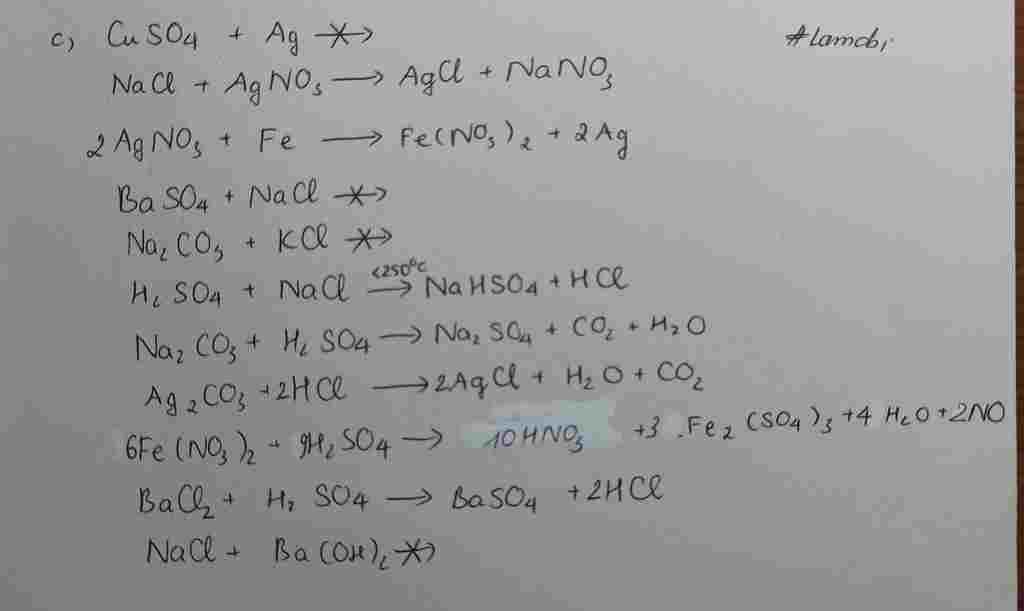 c) CuSO4 + Ag -x-> #lamcb,
NaCl + AgNO3 → AgCl + NaNO3
2AgNO3 + Fe → Fe(NO3)2 + 2Ag
BaSO4 + NaCl -x->
Na2CO3 + KCl -x->
H2SO4 + NaCl <250°C → NaHSO4 + HCl
Na2CO3 + H2SO4 → Na2SO4 + CO2 + H2O
Ag2CO3 + 2HCl → 2AgCl + H2O + CO2
6Fe(NO3)2 + 9H2SO4 → 10HNO3 + 3.Fe2(SO4)3 + 4H2O + 2NO
BaCl2 + H2SO4 → BaSO4 + 2HCl
NaCl + Ba(OH)2 -x->